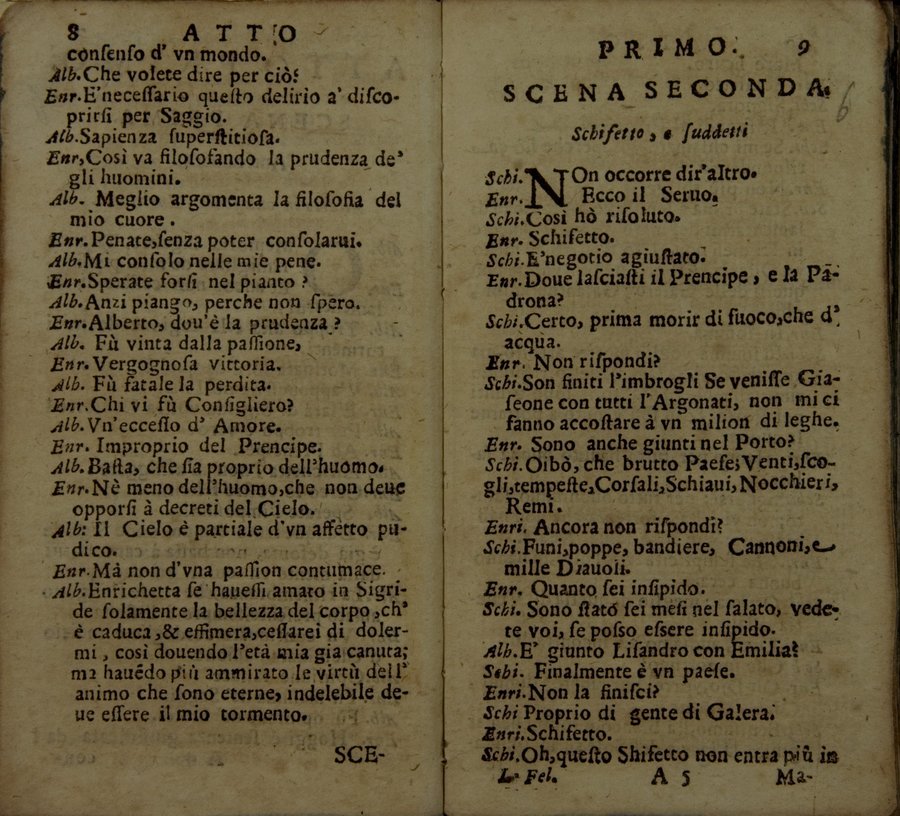 8 ATTO
conſenſo d' vn mondo.
Alb.Che volete dire per ciò?
Enr.E'neceſſario queſto delirio a' diſco-
prirſi per Saggio.
Alb.Sapienza ſuperſtitioſa.
Enr,Così va filoſofando la prudenza de'
gli huomini.
Alb. Meglio argomenta la filoſofia del
mio cuore .
Enr.Penate,ſenza poter conſolarui.
Alb.Mi conſolo nelle mie pene.
Enr.Sperate forſi nel pianto ?
Alb.Anzi piango, perche non ſpero.
Enr.Alberto, dou'è la prudenza ?
Alb. Fù vinta dalla paſſione,
Enr. Vergognoſa vittoria.
Alb. Fù fatale la perdita.
Enr.Chi vi fù Conſigliero?
Alb.Vn'ecceſſo d' Amore.
Enr. Improprio del Prencipe.
Alb.Baſta, che ſia proprio dell'huomo.
Enr.Nè meno dell'huomo,che non deue
opporſi à decreti del Cielo.
Alb: Il Cielo è partiale d'vn affetto pu-
dico.
Enr.Mà non d'vna paſſion contumace.
Alb.Enrichetta ſe haueſſi amato in Sigri-
de ſolamente la bellezza del corpo,ch'
è caduca,& effimera,ceſſarei di doler-
mi , così douendo l'età mia gia canuta;
ma hauēdo più ammirato le virtù dell'
animo che ſono eterne, indelebile de-
ue eſſere il mio tormento.
SCE-
PRIMO. 9
SCENA SECONDA.
6
Schifetto, e ſuddetti
Schi.NOn occorre dir'altro.
Enr. Ecco il Seruo.
Schi.Così hò riſoluto.
Enr. Schifetto.
Schi.E'negotio agiuſtato.
Enr.Doue laſciaſti il Prencipe, e la Pa-
drona?
Schi.Certo, prima morir di fuoco,che d'
acqua.
Enr. Non riſpondi?
Schi.Son finiti l'imbrogli Se veniſſe Gia-
ſeone con tutti l'Argonati, non mi ci
fanno accoſtare à vn milion di leghe.
Enr. Sono anche giunti nel Porto?
Schi.Oibò, che brutto Paeſe; Venti,ſco-
gli,tempeſte,Corſali,Schiaui, Nocchieri,
Remi.
Enri. Ancora non riſpondi?
Schi.Funi,poppe, bandiere, Cannoni,e
mille Diauoli.
Enr. Quanto ſei inſipido.
Schi. Sono ſtato ſei meſi nel ſalato, vede-
te voi, ſe poſſo eſſere inſipido.
Alb.E' giunto Liſandro con Emilia?
Schi. Finalmente è vn paeſe.
Enri.Non la finiſci?
Schi Proprio di gente di Galera.
Enri.Schifetto.
Schi.Oh,queſto Shifetto non entra più in
La Fel. A 5 Ma-